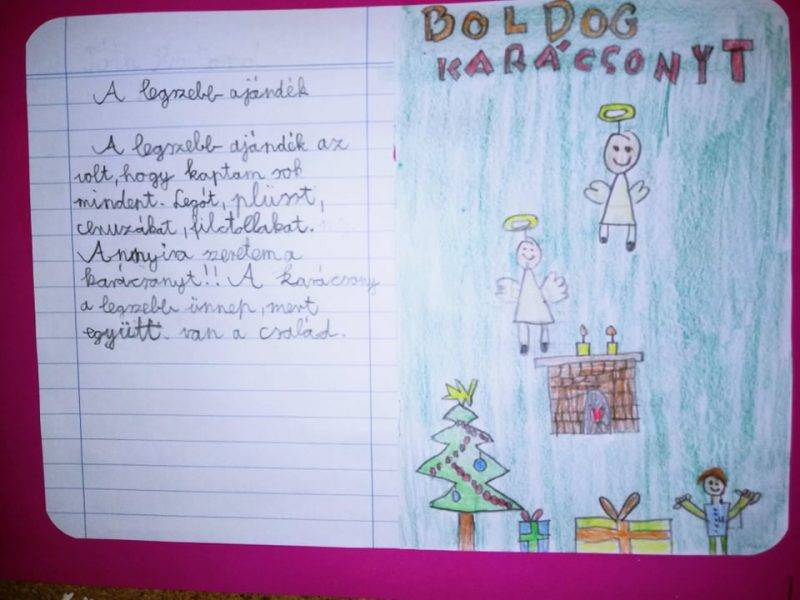 A legszebb ajándék
A legszebb ajándék az
volt, hogy kaptam sok
mindent. Legót, plüsst,
ceruzákat, filctollakat.
Annyira szeretem a
karácsonyt!! A karácsony
a legszebb ünnep, mert
együtt van a család.
BOLDOG
KARÁCSONYT